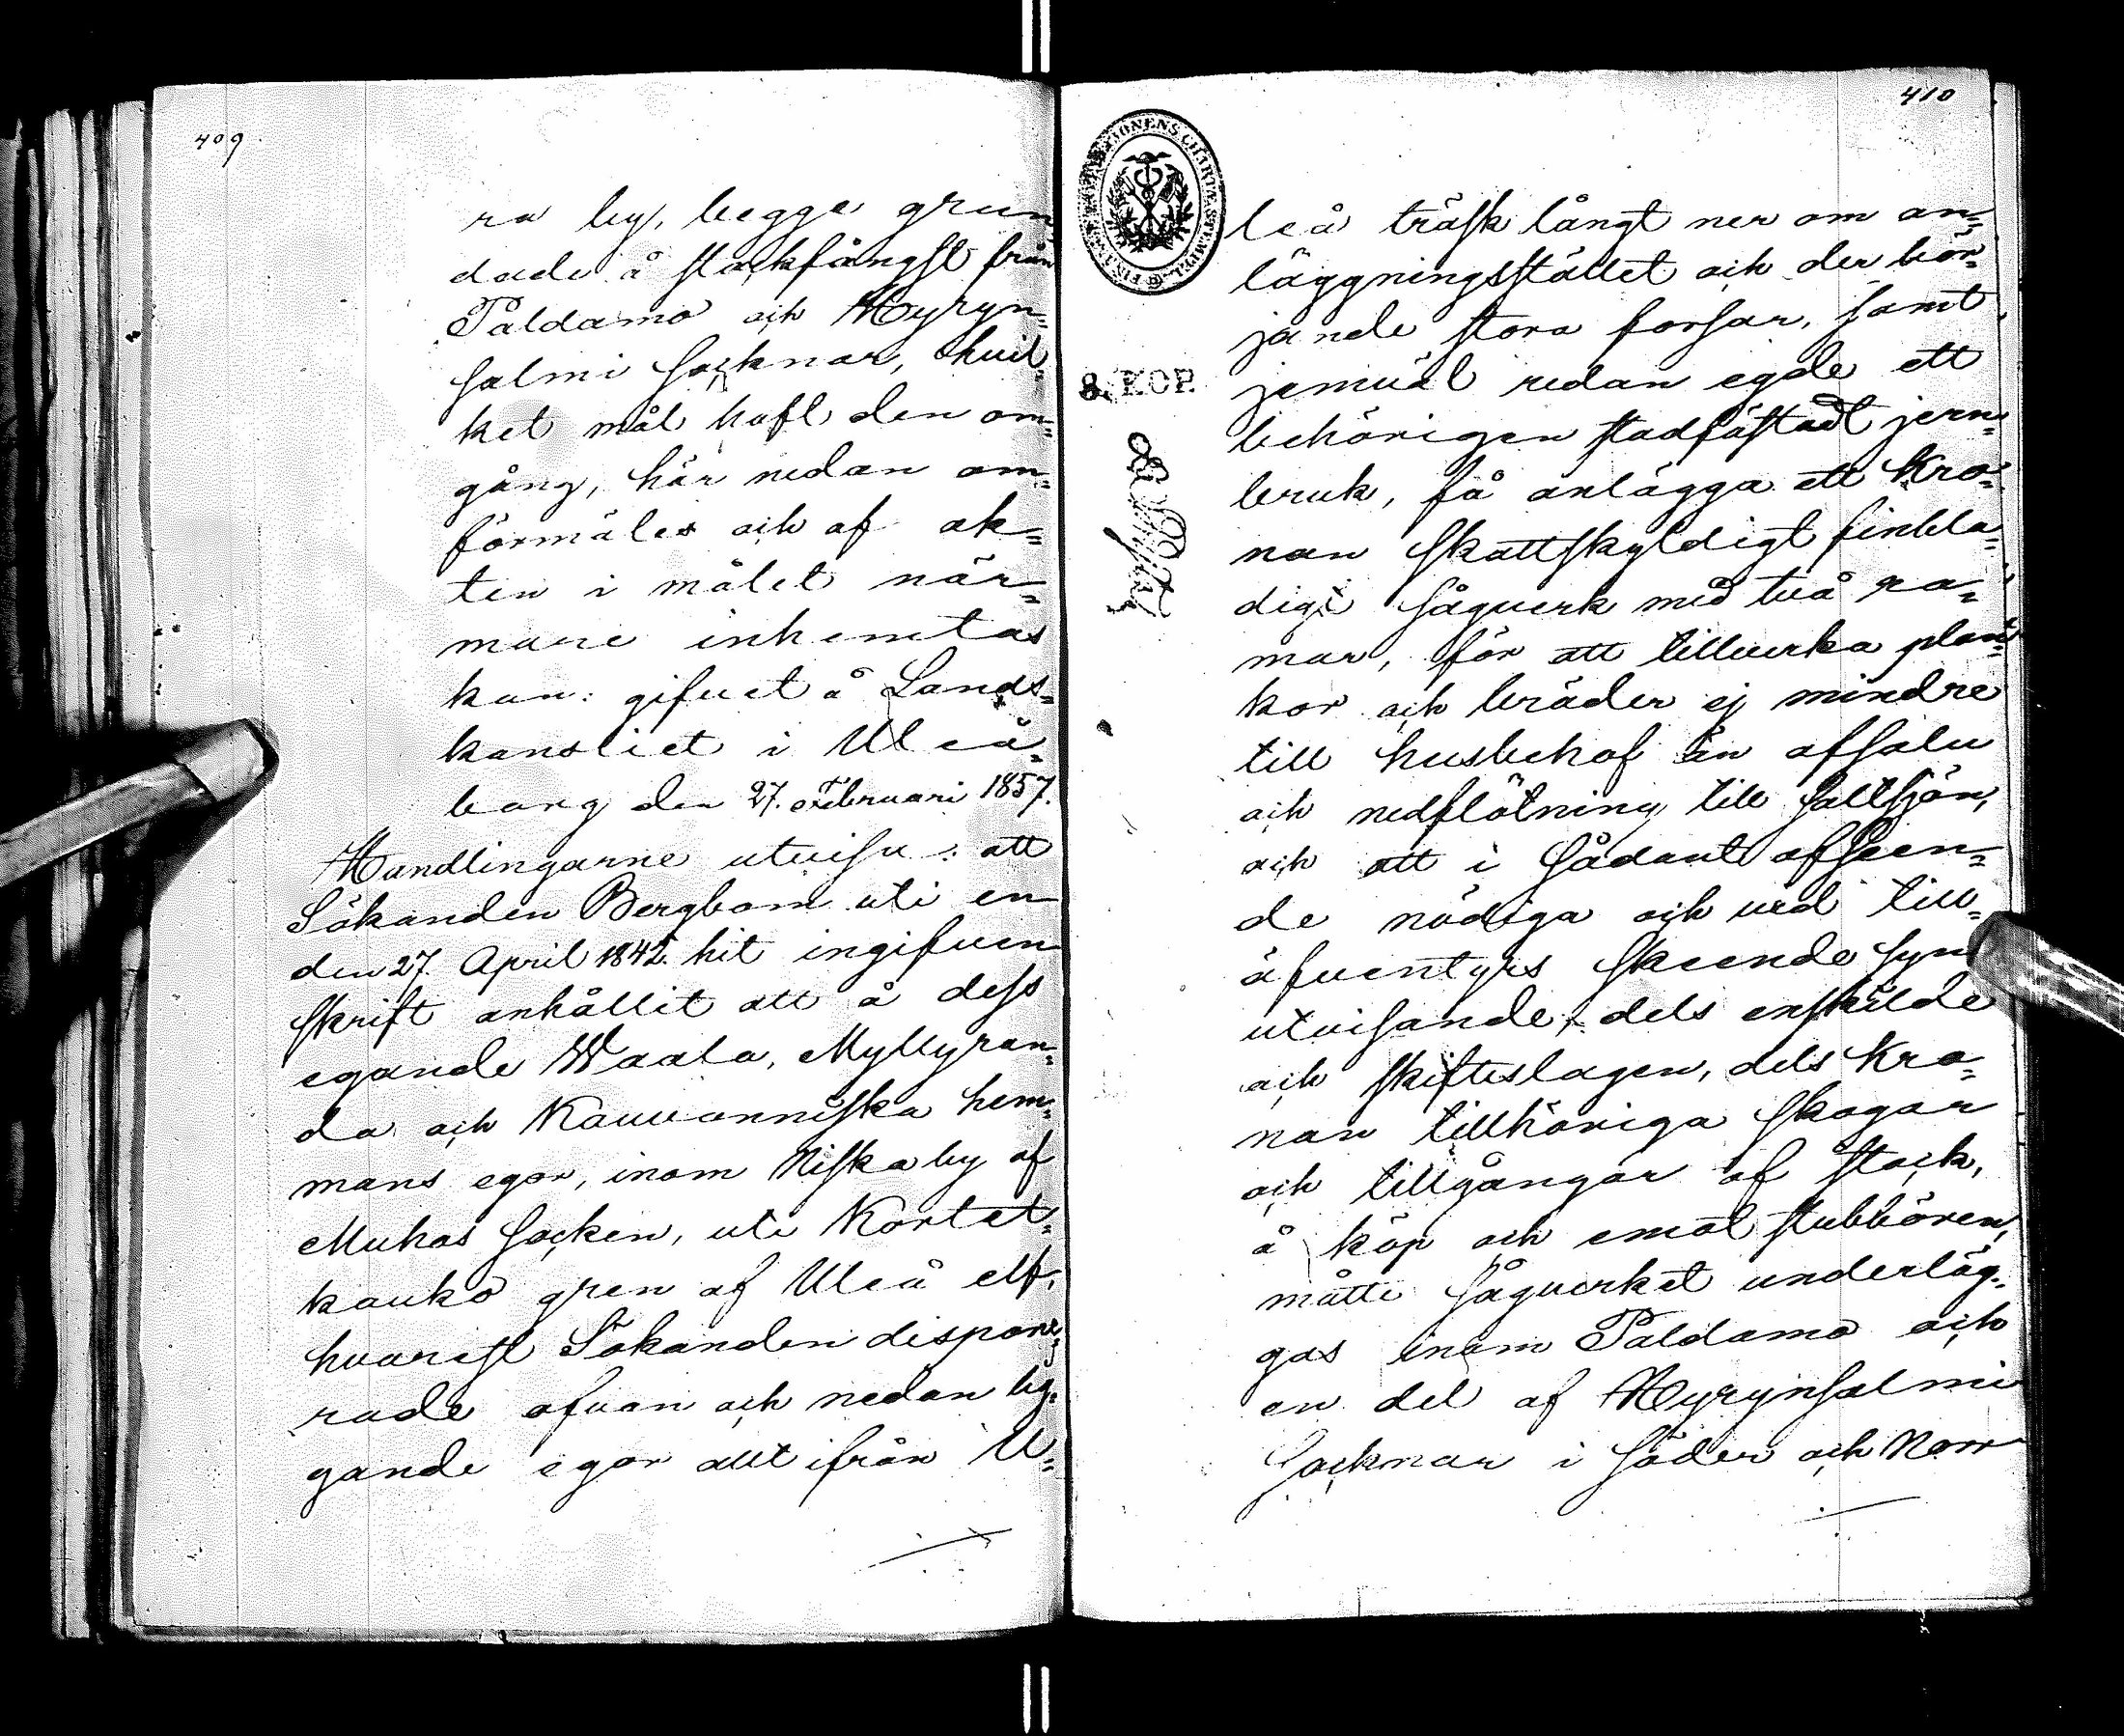 409
ra by, begge grun
dade å stockfångst från
Paldamo och Hyryn=
salmi Socknar, hvil=
ket mål haft den om=
gång, här nedan om=
förmäles och af ak=
ten i målet när=
mare inhemtas
kan: gifvet å Lands=
kansliet i Uleå=
borg den 27. Februari 1857.
Handlingarne utvisa: att
Sökanden Bergbom uti en
den 27. April 1842 hit ingifven
skrift anhållit att å dess
egande Waala, Myllyran=
da och Kauvanniska hem=
mans egor, inom Niska by af
Muhos Socken, uti Kortet=
kauko gren af Uleå elf,
hvarest Sökanden dispone=
rade ofvan och nedan lig=
gande egor allt ifrån U=
410
FINSKA CHARTÆ STÄMPEL
8. KOP.
leå träsk långt ner om an=
läggningsstället och der bör=
jande stora forsar, samt
jemväl redan egde ett
behörigen stadfästadt jern=
bruk, få anlägga ett Kro=
nan skattskyldigt finbla=
digt sågverk med två ra=
mar, för att tillverka plan=
kor och bräder ej mindre
till husbehof än afsalu
och nedflötning till Saltsjön,
och att i sådant afseen=
de nödiga och vid till=
äfventyrs skeende syn
utvisande, dels enskilde
och skifteslagen, dels Kro=
nan tillhöriga skogar
och tillgångar af stock,
å köp och emot stubbören,
måtte sågverket underläg=
gas inom Paldamo och
en del af Hyrynsalmi
Socknar i söder och Norr